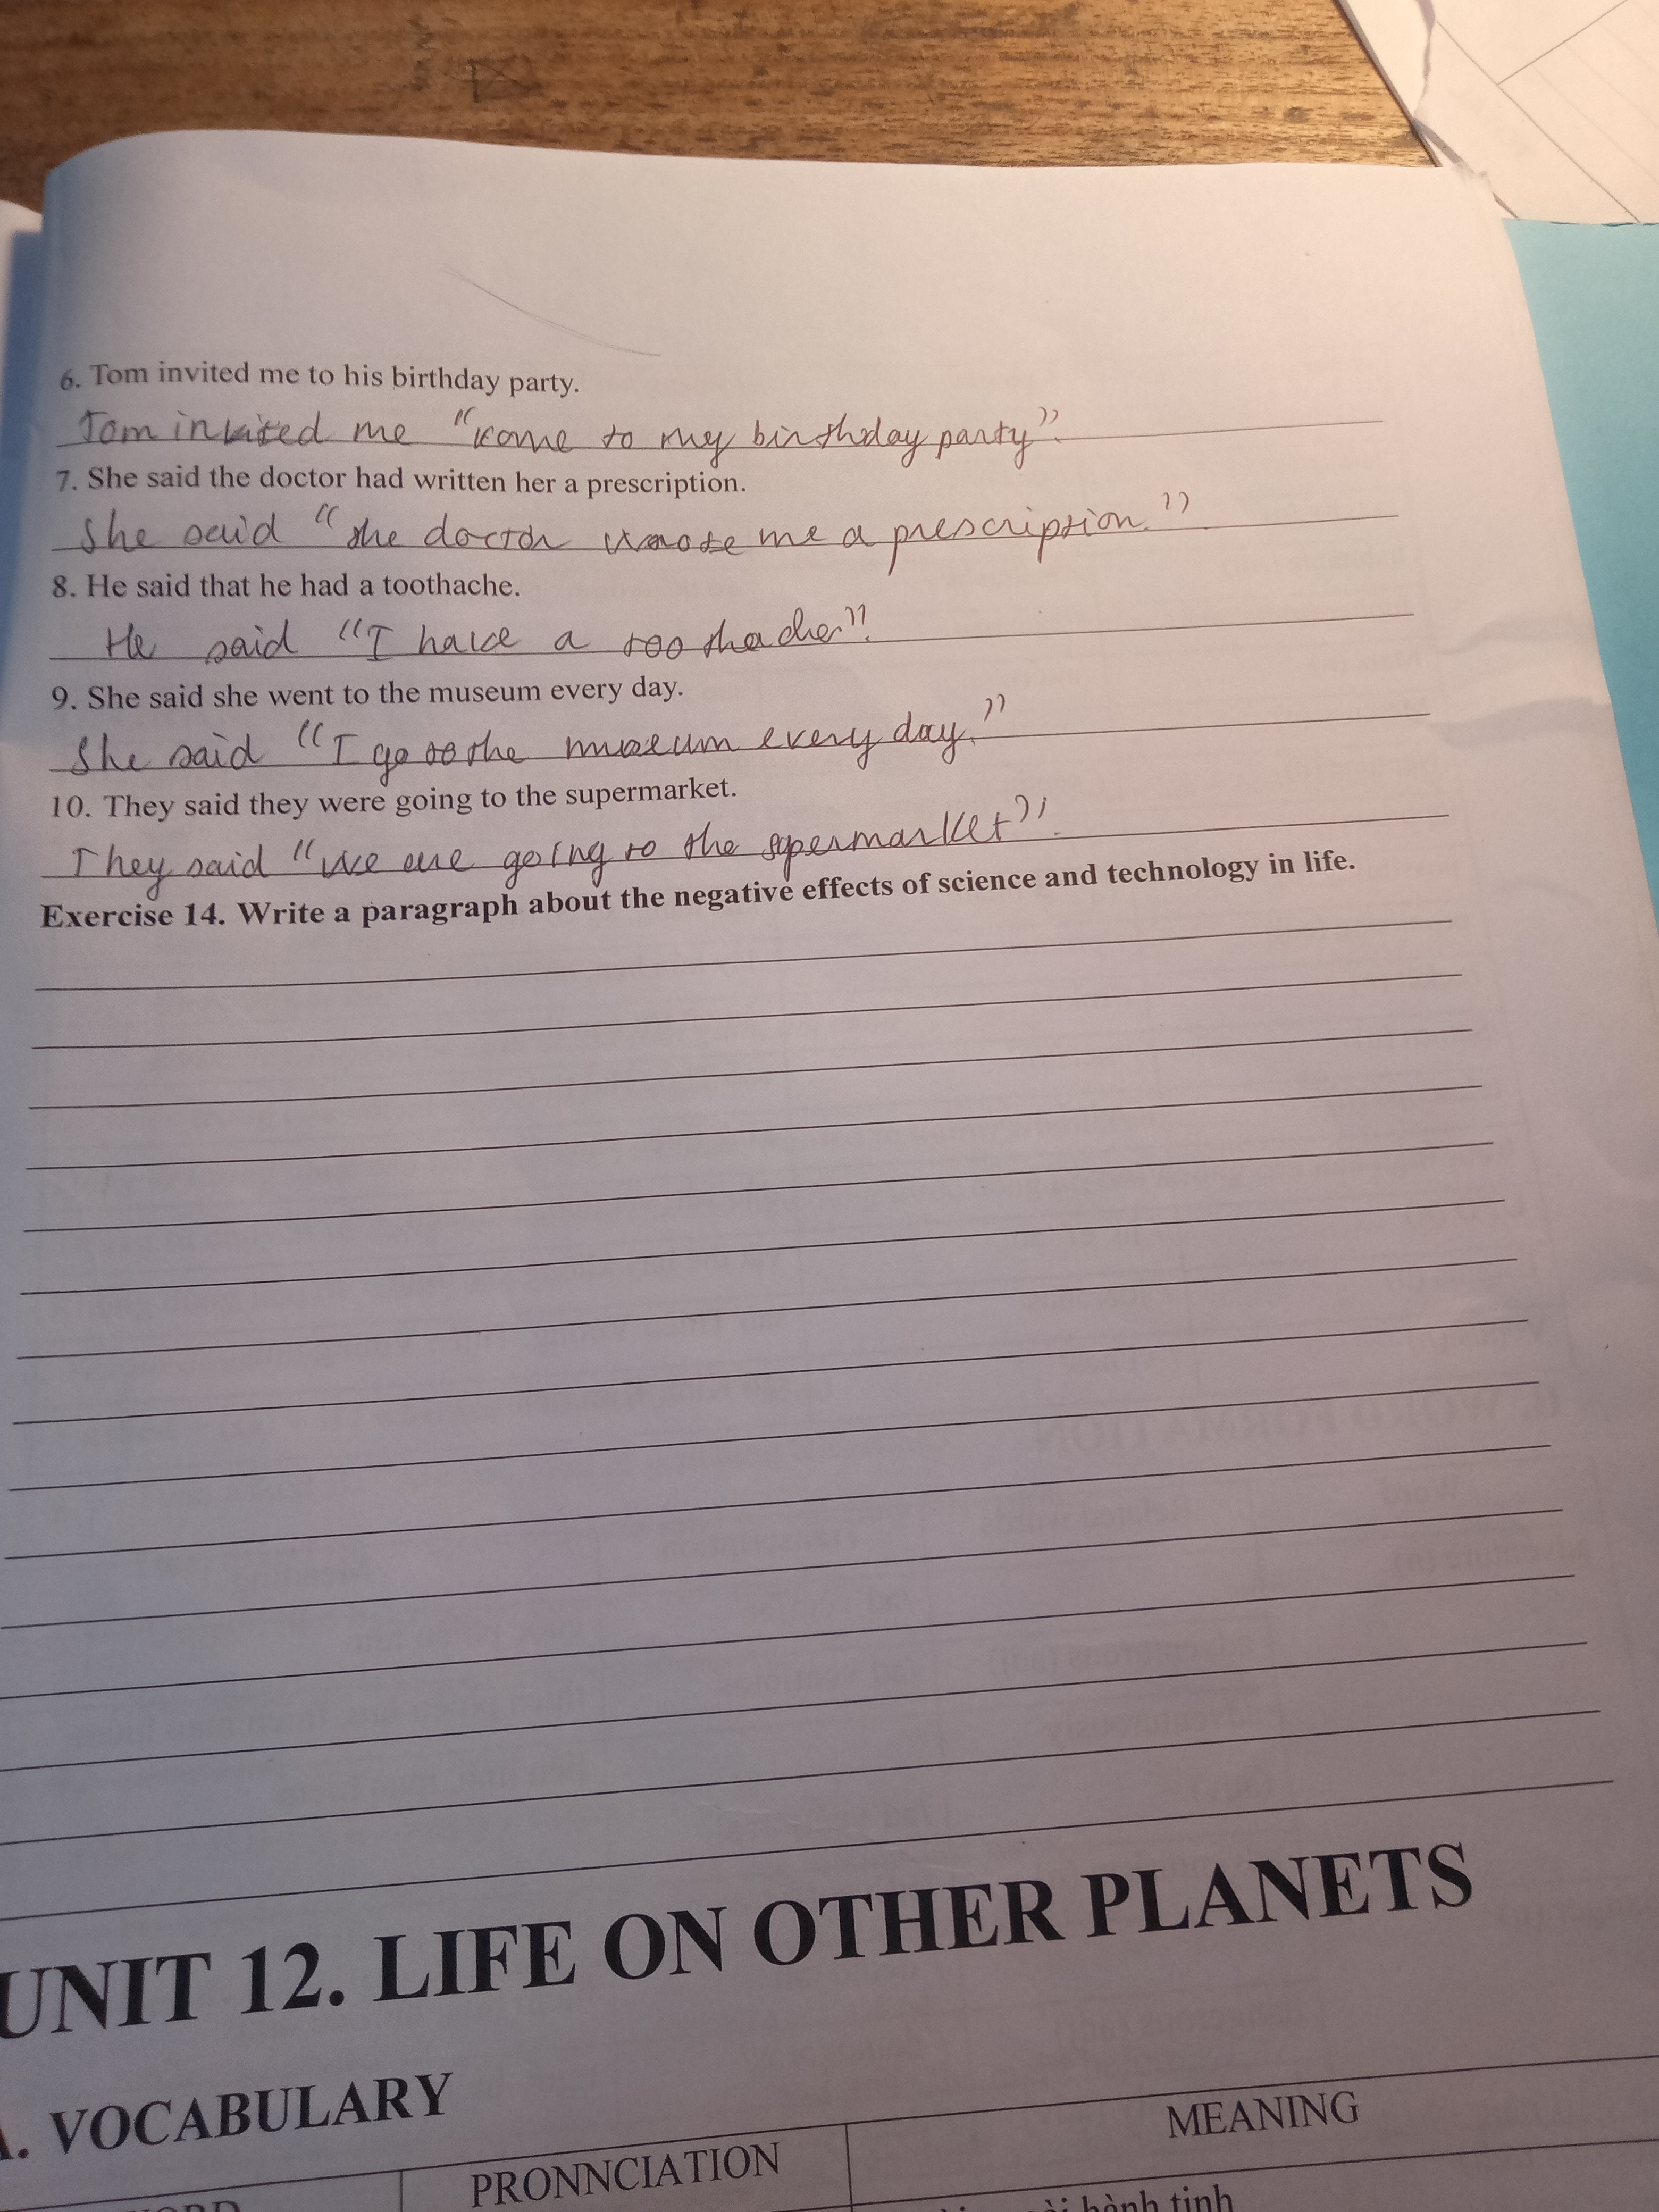 6. Tom invited me to his birthday party.
Tom invited me "come to my birthday party".
7. She said the doctor had written her a prescription.
She said "the doctor wrote me a prescription."
8. He said that he had a toothache.
He said "I have a toothache".
9. She said she went to the museum every day.
She said "I go to the museum every day."
10. They said they were going to the supermarket.
They said "we are going to the supermarket".
Exercise 14. Write a paragraph about the negative effects of science and technology in life.
UNIT 12. LIFE ON OTHER PLANETS
. VOCABULARY
PRONNCIATION
MEANING
hành tinh